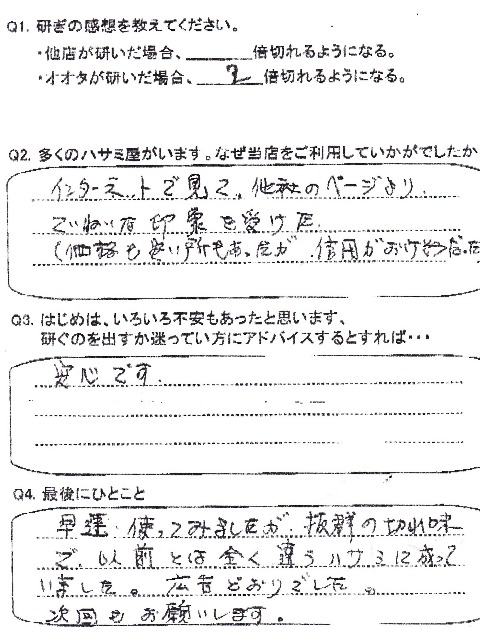 Q1. 研ぎの感想を教えてください。
・他店が研いだ場合、______倍切れるようになる。
・オオタが研いだ場合、__2__倍切れるようになる。
Q2. 多くのハサミ屋がいます。なぜ当店をご利用していかがでしたか
インターネットで見て、他社のページより、
ていねいな印象を受けた
(価格も安い所もあったが 信用がおけそうだった
Q3. はじめは、いろいろ不安もあったと思います、
研ぐのを出すか迷ってい方にアドバイスするとすれば・・・
安心です.
Q4. 最後にひとこと
早速 使ってみましたが、抜群の切れ味
で、以前とは全く違うハサミに成って
いました。広告どおりでした。
次回もお願いします。